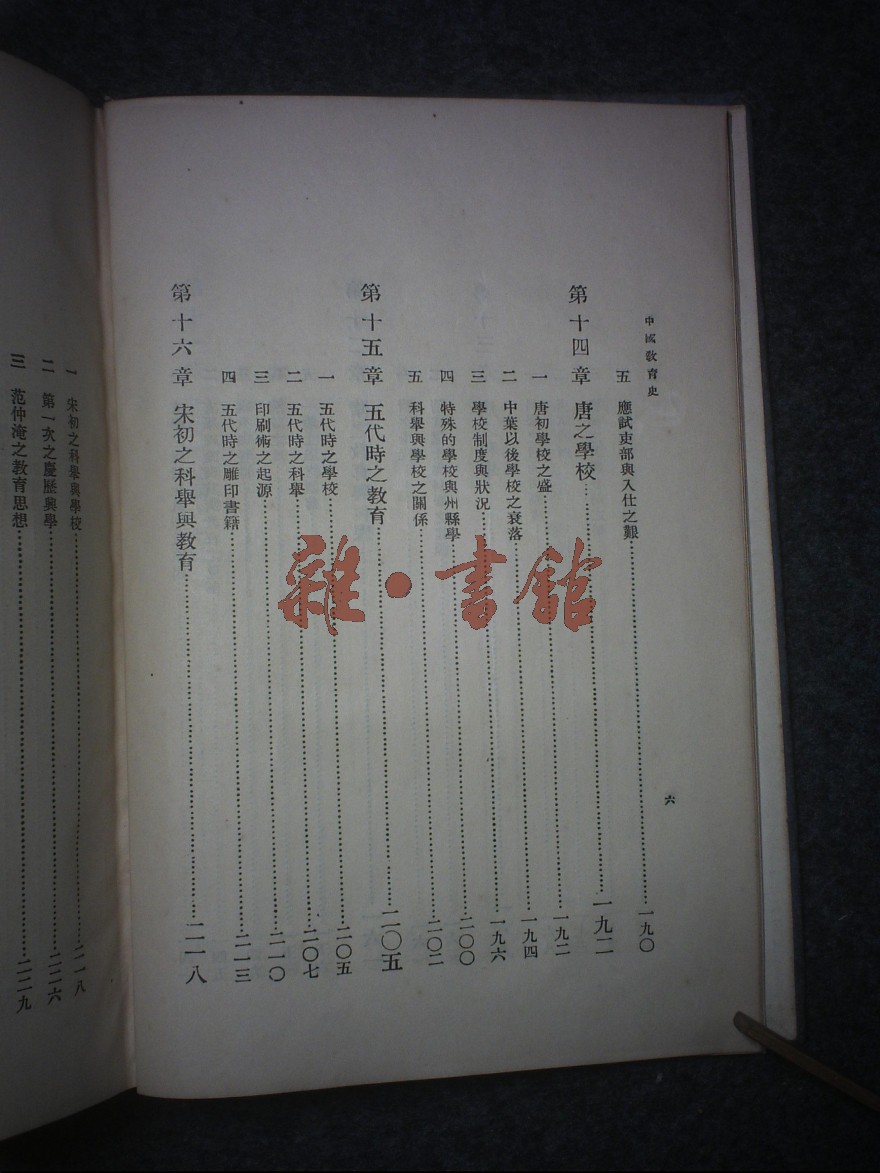 中國教育史
六
五 應試吏部與入仕之艱……一九〇
第十四章 唐之學校……一九二
一 唐初學校之盛……一九二
二 中葉以後學校之衰落……一九四
三 學校制度與狀況……一九六
四 特殊的學校與州縣學……二〇〇
五 科舉與學校之關係……二〇二
第十五章 五代時之教育……二〇五
一 五代時之學校……二〇五
二 五代時之科舉……二〇七
三 印刷術之起源……二一〇
四 五代時之雕印書籍……二一三
第十六章 宋初之科舉與教育……二一八
一 宋初之科舉與學校……二一八
二 第一次之慶歷興學……二二六
三 范仲淹之教育思想……二二九
雜·書館